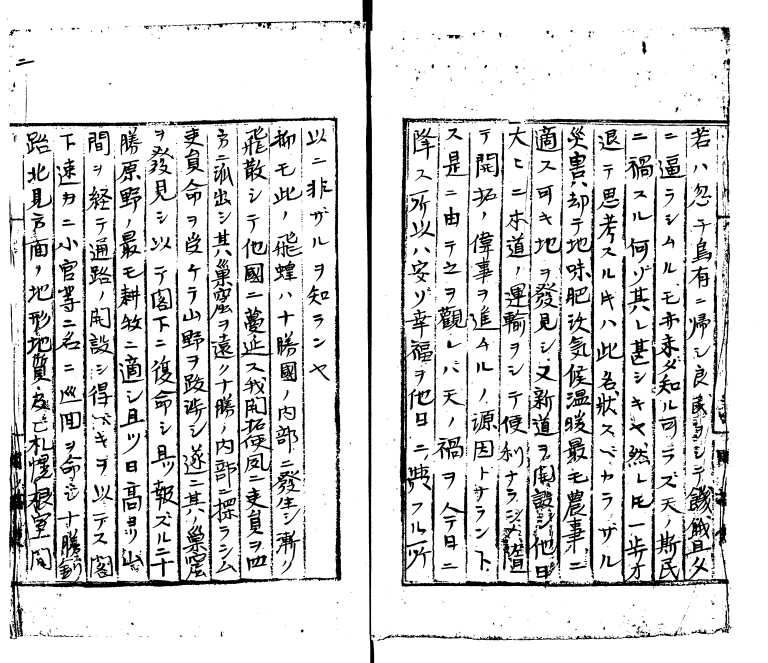 若ハ忽チ烏有ニ帰シ良民ヲシテ饑餓旦夕
ニ逼ラシムルモ亦未ダ知ル可ラズ天ノ斯民
ニ禍スル何ゾ其レ甚シキヤ然レ𪜈一歩ヲ
退テ思考スル𪜈ハ此名状スベカラザル
災害ハ却テ地味肥沃気候温暖最モ農事ニ
適ス可キ地ヲ發見シ又新道ヲ開設シ他日
大ヒニ水道ノ運輸ヲシテ便利ナラシメ
テ開拓ノ偉事ヲ進ムルノ源因トナラント
ス是ニ由テ之ヲ觀レバ天ノ禍ヲ今日ニ
降ス所以ハ安ゾ幸福ヲ他日ニ與フル所
二
以ニ非ザルヲ知ランヤ
抑モ此ノ飛蝗ハ十勝國ノ内部ニ發生シ漸ク
飛散シテ他國ニ蔓延ス我開拓使夙ニ吏員ヲ四
方ニ派出シ其巣窟ヲ遠ク十勝ノ内部ニ探ラシム
吏員命ヲ受ケテ山野ヲ跋渉シ遂ニ其ノ巣窟
ヲ發見シ以テ閣下ニ復命シ且ツ報ズルニ十
勝原野ノ最モ耕牧ニ適シ且ツ日高ヨリ山
間ヲ経テ通路ノ開設シ得ベキヲ以テス閣
下速カニ小官等二名ニ巡回ヲ命ジ十勝釧
路北見方面ノ地形地質及ビ札幌根室間